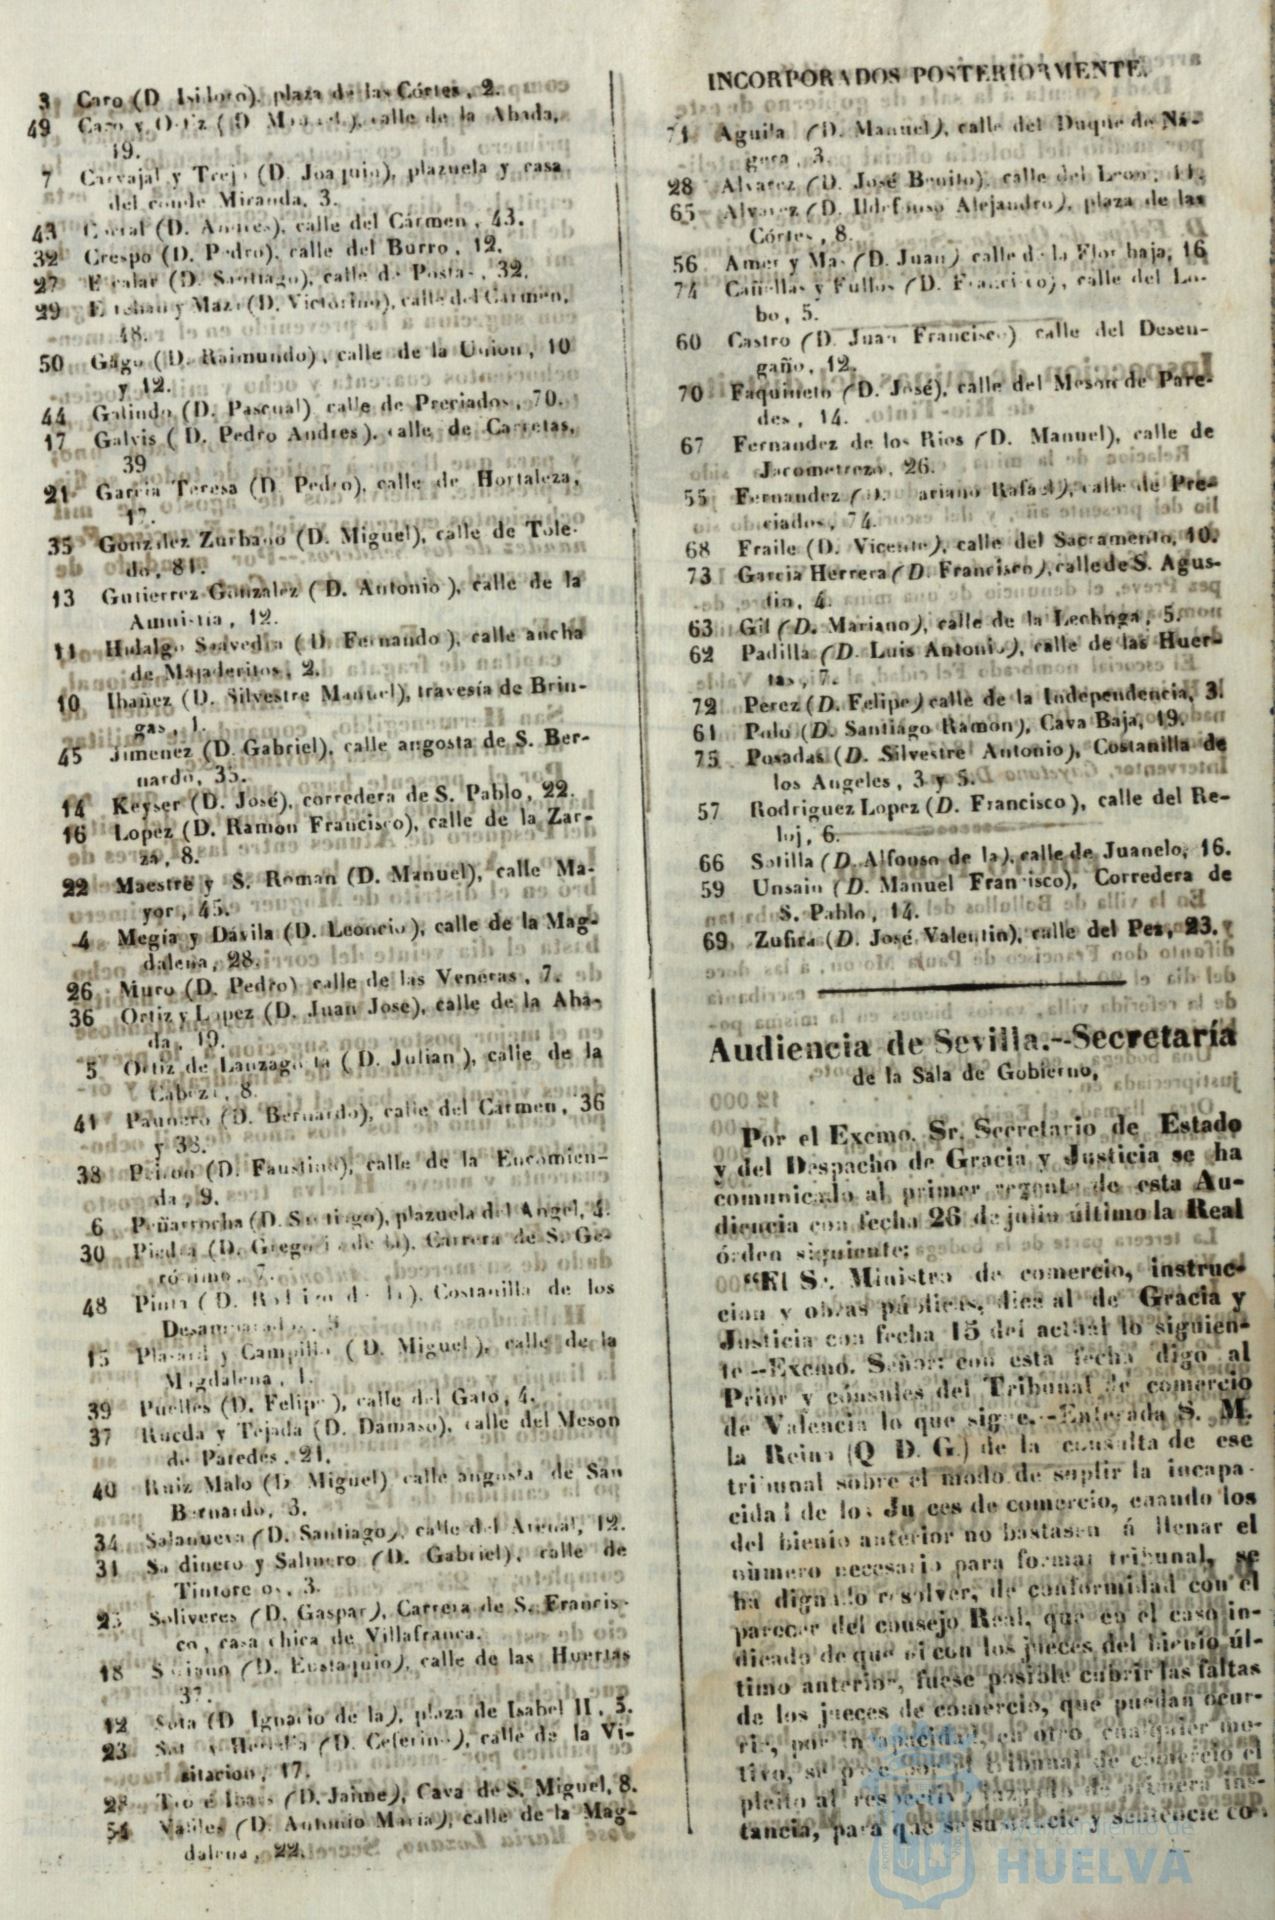 3 Caro (D. Isidoro), plaza de las Córtes, 2.
49 Caro y Ortiz (D. Manuel), calle de la Abada,
19.
7 Carvajal y Trejo (D. Joaquin), plazuela y casa
del conde Miranda, 3.
43 Corral (D. Andres), calle del Cármen, 43.
32 Crespo (D. Pedro), calle del Burro, 12.
27 Escalar (D. Santiago), calle de Postas, 32.
29 Esteban y Mazo (D. Victorino), calle del Cármen,
48.
50 Gago (D. Raimundo), calle de la Union, 10
y 12.
44 Galindo (D. Pascual) calle de Preciados, 70.
17 Galvis (D. Pedro Andres), calle de Carretas,
39
21 Garcia Teresa (D. Pedro), calle de Hortaleza,
17.
35 Gonzalez Zurbano (D. Miguel), calle de Tole-
do, 81.
13 Gutierrez Gonzalez (D. Antonio), calle de la
Amnistia, 12.
11 Hidalgo Saavedra (D. Fernando), calle ancha
de Majaderitos, 2.
10 Ibañez (D. Silvestre Manuel), travesía de Brin-
gas, 1.
45 Jimenez (D. Gabriel), calle angosta de S. Ber-
nardo, 35.
14 Keyser (D. José), corredera de S. Pablo, 22.
16 Lopez (D. Ramon Francisco), calle de la Zar-
za, 8.
22 Maestre y S. Roman (D. Manuel), calle Ma-
yor, 45.
4 Megia y Dávila (D. Leoncio), calle de la Mag-
dalena, 28.
26 Muro (D. Pedro) calle de las Veneras, 7.
36 Ortiz y Lopez (D. Juan José), calle de la Aba-
da, 19.
5 Ortiz de Lanzagorta (D. Julian), calle de la
Cabeza, 8.
41 Paunero (D. Bernardo), calle del Cármen, 36
y 38.
38 Peinon (D. Faustino), calle de la Encomien-
da, 9.
6 Peñarrocha (D. Santiago), plazuela del Angel, 4.
30 Piedra (D. Gregorio de la), Carrera de S. Ge-
rónimo, 7.
48 Pinta (D. de la), Costanilla de los
Desamparados, 3
15 Plasard y Campillo (D. Miguel), calle de la
Magdalena, 1.
39 Puelles (D. Felipe), calle del Gato, 4.
37 Rueda y Tejada (D. Damaso), calle del Meson
de Paredes, 21.
40 Ruiz Malo (D. Miguel) calle angosta de San
Bernardo, 3.
34 Salanueva (D. Santiago), calle del Arenal, 12.
31 Sardinero y Salinero (D. Gabriel), calle de
Tintoreros, 3.
25 Soliveres (D. Gaspar), Carrera de S. Francis-
co, casa chica de Villafranca.
18 Soriano (D. Eustaquio), calle de las Huertas
37.
12 Sota (D. Ignacio de la), plaza de Isabel II, 5.
23 y Heredia (D. Ceferino), calle de la Vi-
sitacion, 17.
28 (D. Jaime), Cava de S. Miguel, 8.
54 Valiles (D. Antonio María), calle de la Mag-
dalena, 22.
INCORPORADOS POSTERIORMENTE.
71 Aguila (D. Manuel), calle del Duque de Ná-
gera, 3.
28 Alvarez (D. José Benito), calle del Leon, 11.
65 Alvarez (D. Ildefonso Alejandro), plaza de las
Córtes, 8.
56 Amer y Mas (D. Juan) calle de la Flor baja, 16
74 Cañellas y Fullos (D. Francisco), calle del Lo-
bo, 5.
60 Castro (D. Juan Francisco) calle del Desen-
gaño, 12.
70 Faquineto (D. José), calle del Meson de Pare-
des, 14.
67 Fernandez de los Rios (D. Manuel), calle de
Jacometrezo, 26.
55 Fernandez (D. Mariano Rafael), calle de Pre-
ciados, 74.
68 Fraile (D. Vicente), calle del Sacramento, 10.
73 Garcia Herrera (D. Francisco), calle de S. Agus-
tin, 4.
63 Gil (D. Mariano), calle de la Lechuga, 5.
62 Padilla (D. Luis Antonio), calle de las Huer-
tas, 7.
72 Perez (D. Felipe) calle de la Independencia, 3.
61 Polo (D. Santiago Ramon), Cava Baja, 19.
75 Posadas (D. Silvestre Antonio), Costanilla de
los Angeles, 3 y 5.
57 Rodriguez Lopez (D. Francisco), calle del Re-
loj, 6.
66 Sotilla (D. Alfonso de la), calle de Juanelo, 16.
59 Unsain (D. Manuel Francisco), Corredera de
S. Pablo, 14.
69 Zufira (D. José Valentin), calle del Pez, 23.
Audiencia de Sevilla.--Secretaría
de la Sala de Gobierno.
Por el Excmo. Sr. Secretario de Estado
y del Despacho de Gracia y Justicia se ha
comunicado al primer regente de esta Au-
diencia con fecha 26 de julio último la Real
órden siguiente:
"El Sr. Ministro de comercio, instruc-
cion y obras públicas, dice al de Gracia y
Justicia con fecha 15 del actual lo siguien-
te--Excmo. Señor: con esta fecha digo al
Prior y cónsules del Tribunal de comercio
de Valencia lo que sigue.--Enterada S. M.
la Reina (Q D. G.) de la consulta de ese
tribunal sobre el modo de suplir la incapa-
cidad de los Jueces de comercio, cuando los
del bienio anterior no bastasen á llenar el
número necesario para formar tribunal, se
ha dignado resolver, de conformidad con el
parecer del consejo Real, que en el caso in-
dicado de que ni con los jueces del bienio úl-
timo anterior, fuese posible cubrir las faltas
de los jueces de comercio, que puedan ocur-
rir, por incapacidad, en otro cualquier mo-
tivo, se pase por el tribunal de comercio el
pleito al respectivo juzgado de primera ins-
tancia, para que se sustancie y sentencie co-
Ayuntamiento de
HUELVA